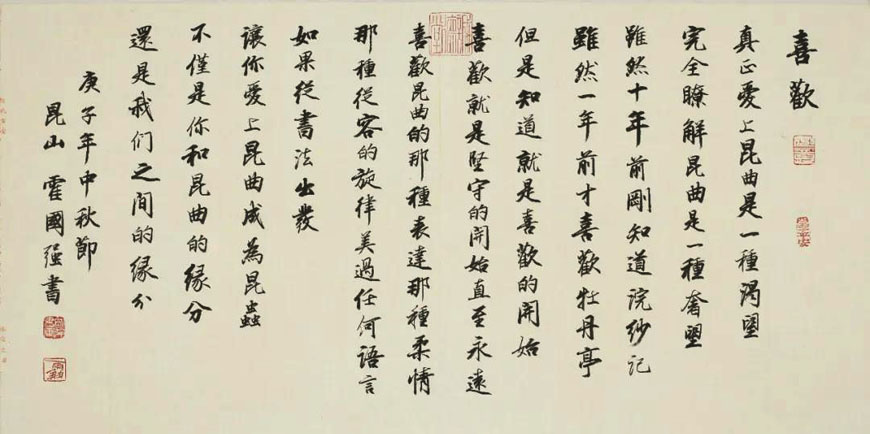 喜歡
真正愛上昆曲是一種渴望
完全瞭解昆曲是一種奢望
雖然十年前剛知道浣紗记
雖然一年前才喜歡牡丹亭
但是知道就是喜歡的開始
喜歡就是堅守的開始直至永遠
喜歡昆曲的那種表達那種柔情
那種從容的旋律美過任何語言
如果從書法出發
讓你愛上昆曲成為昆蟲
不僅是你和昆曲的缘分
還是我们之間的缘分
庚子年中秋節
昆山霍國强書